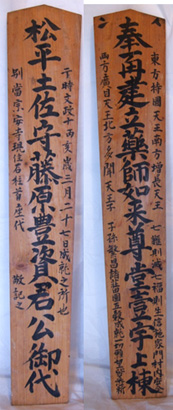 東方持國天王南方増長天王 七難則滅七福則生
奉再建立薬師如来尊堂壹宇上棟
西方廣目天王北方多聞天王 子孫繁昌
于時文政十 亥歳二月二十七日成就之所也
松平土佐守藤原豊資君公御代
別當宗安寺現住石柱首座代 敬記之